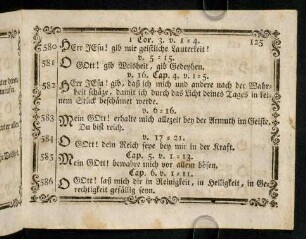 1 Cor. 3. v. 1=4.
125
580 HErr JEsu! gib mir geistliche Lauterkeit!
v. 5=15.
581 O GOtt! gib Weisheit, gib Gedeyhen.
v. 16. Cap. 4. v. 1=5.
582 HErr JEsu! gib, daß ich mich und andere nach der Wahr=
heit schäze, damit ich durch das Licht deines Tages in kei=
nem Stück beschämet werde.
v. 6=16.
583 Mein GOtt! erhalte mich allezeit bey der Armuth im Geiste.
Du bist reich.
v. 17=21.
584 O GOtt! dein Reich seye bey mir in der Kraft.
Cap. 5. v. 1=13.
585 Mein GOtt! bewahre mich vor allem bösen.
Cap. 6. v. 1=11.
586 O GOtt! laß mich dir in Reinigkeit, in Heiligkeit, in Ge=
rechtigkeit gefällig seyn.